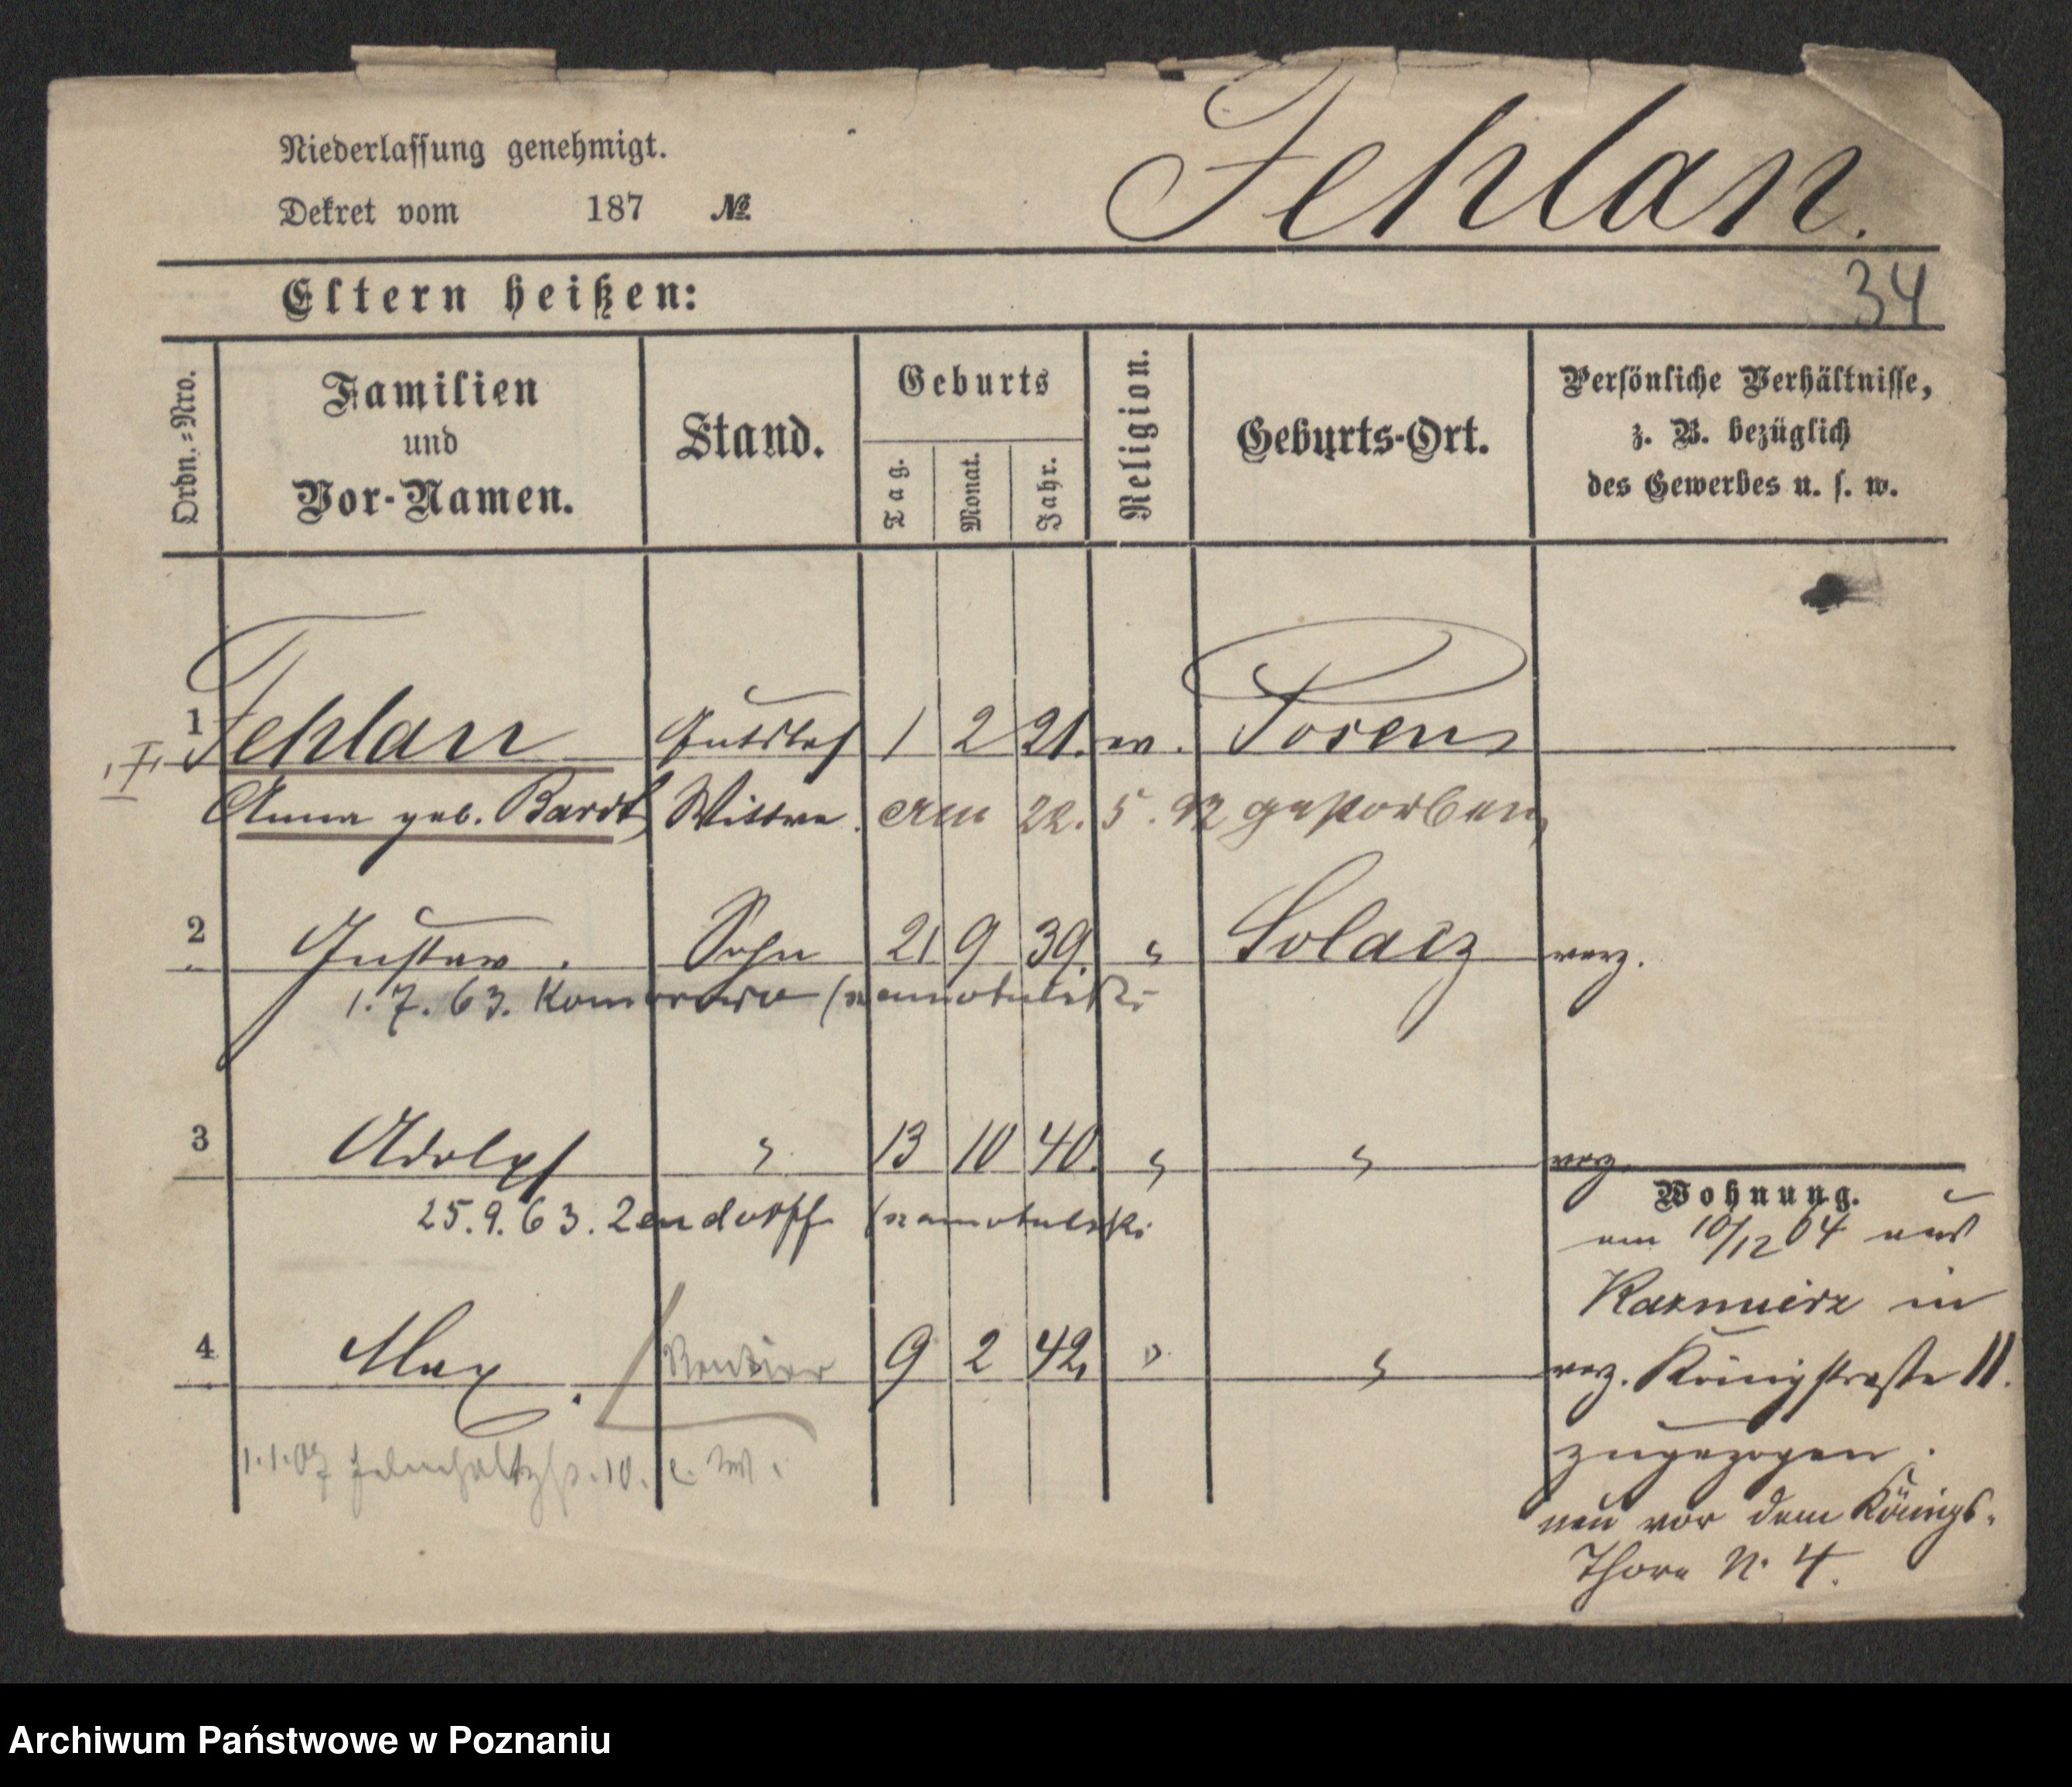 Niederlassung genehmigt.
Fehlan.
Dekret vom 187 №
Eltern heißen:
34
Ordn.=Nro.
Familien
und
Vor-Namen.
Stand.
Geburts
Tag.
Monat.
Jahr.
Religion.
Geburts-Ort.
Persönliche Verhältnisse,
z. B. bezüglich
des Gewerbes u. s. w.
1 Fehlan Gutsbes 1 2 21. ev. Posen
Anna geb. Bardt Wittwe. am 22. 5. 92 gestorben
2 Gustav. Sohn 21 9 39. " Solacz verz.
1. 7. 63. Komorowo
3 Adolph " 13 10 40. " " verz.
25. 9. 63.
Wohnung.
am 10/12 04 aus
Kazmierz in
4 Max. Rentier 9 2 42. " " verz. Königstraße 11.
zugezogen.
1.1.07 10.
neu vor dem Königs-
Thore N. 4.
Archiwum Państwowe w Poznaniu